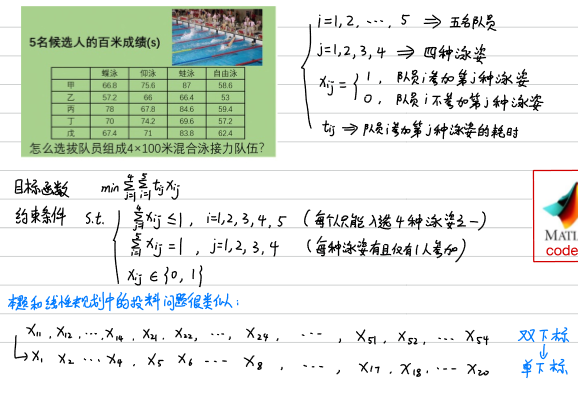 5名候选人的百米成绩(s)
蝶泳 仰泳 蛙泳 自由泳
甲 66.8 75.6 87 58.6
乙 57.2 66 66.4 53
丙 78 67.8 84.6 59.4
丁 70 74.2 69.6 57.2
戊 67.4 71 83.8 62.4
怎么选拔队员组成4×100米混合泳接力队伍?
i=1, 2, ⋯, 5 ⇒ 五名队员
j=1,2,3,4 ⇒ 四种泳姿
xij = { 1, 队员i参加第j种泳姿
0, 队员i不参加第j种泳姿
tij ⇒ 队员i参加第j种泳姿的耗时
目标函数 min ∑(j=1→4) ∑(i=1→5) tij xij
约束条件 s.t. { ∑(j=1→4) xij ≤ 1, i=1,2,3,4,5 (每个人只能入选4种泳姿之一)
∑(i=1→5) xij = 1, j=1,2,3,4 (每种泳姿有且仅有1人参加)
xij ∈ {0, 1}
MATL
code
本题和线性规划中的投料问题很类似:
x11, x12, ⋯, x14, x21, x22, ⋯, x24, ⋯, x51, x52, ⋯ x54 双下标
↓
→ x1 x2 ⋯ x4 x5 x6 ⋯ x8, ⋯, x17, x18, ⋯ x20 单下标